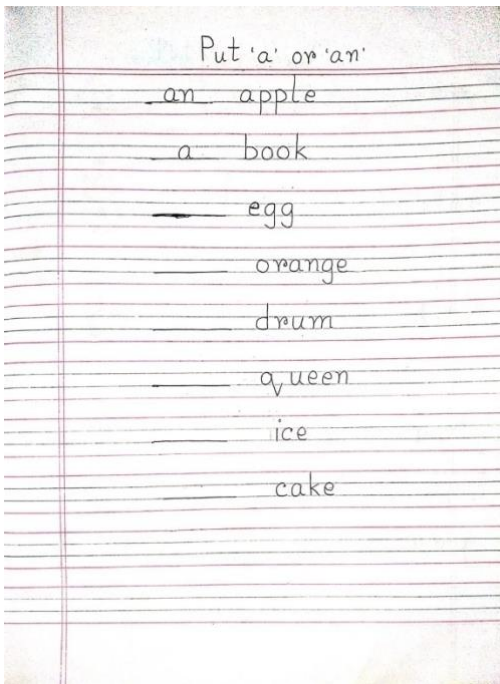 Put 'a' or 'an'
an apple
a book
____ egg
____ orange
____ drum
____ queen
____ ice
____ cake